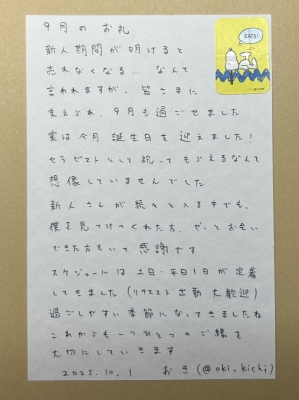 9月の お礼
RATS!
新人期間が明けると
売れなくなる… なんて
言われますが、皆さまに
支えられ、9月も過ごせました
実は今月 誕生日を迎えました!
セラピストとして祝ってもらえるなんて
想像していませんでした
新人さんが続々と入る中でも、
僕を見つけてくれた方、やっとお会い
できた方もいて 感謝です
スケジュールは 土日・平日1日が定着
してきました (リクエスト出勤 大歓迎)
過ごしやすい季節になってきましたね
これからも一つひとつのご縁を
大切にしていきます
2025.10.1 おき (@oki_kichi)